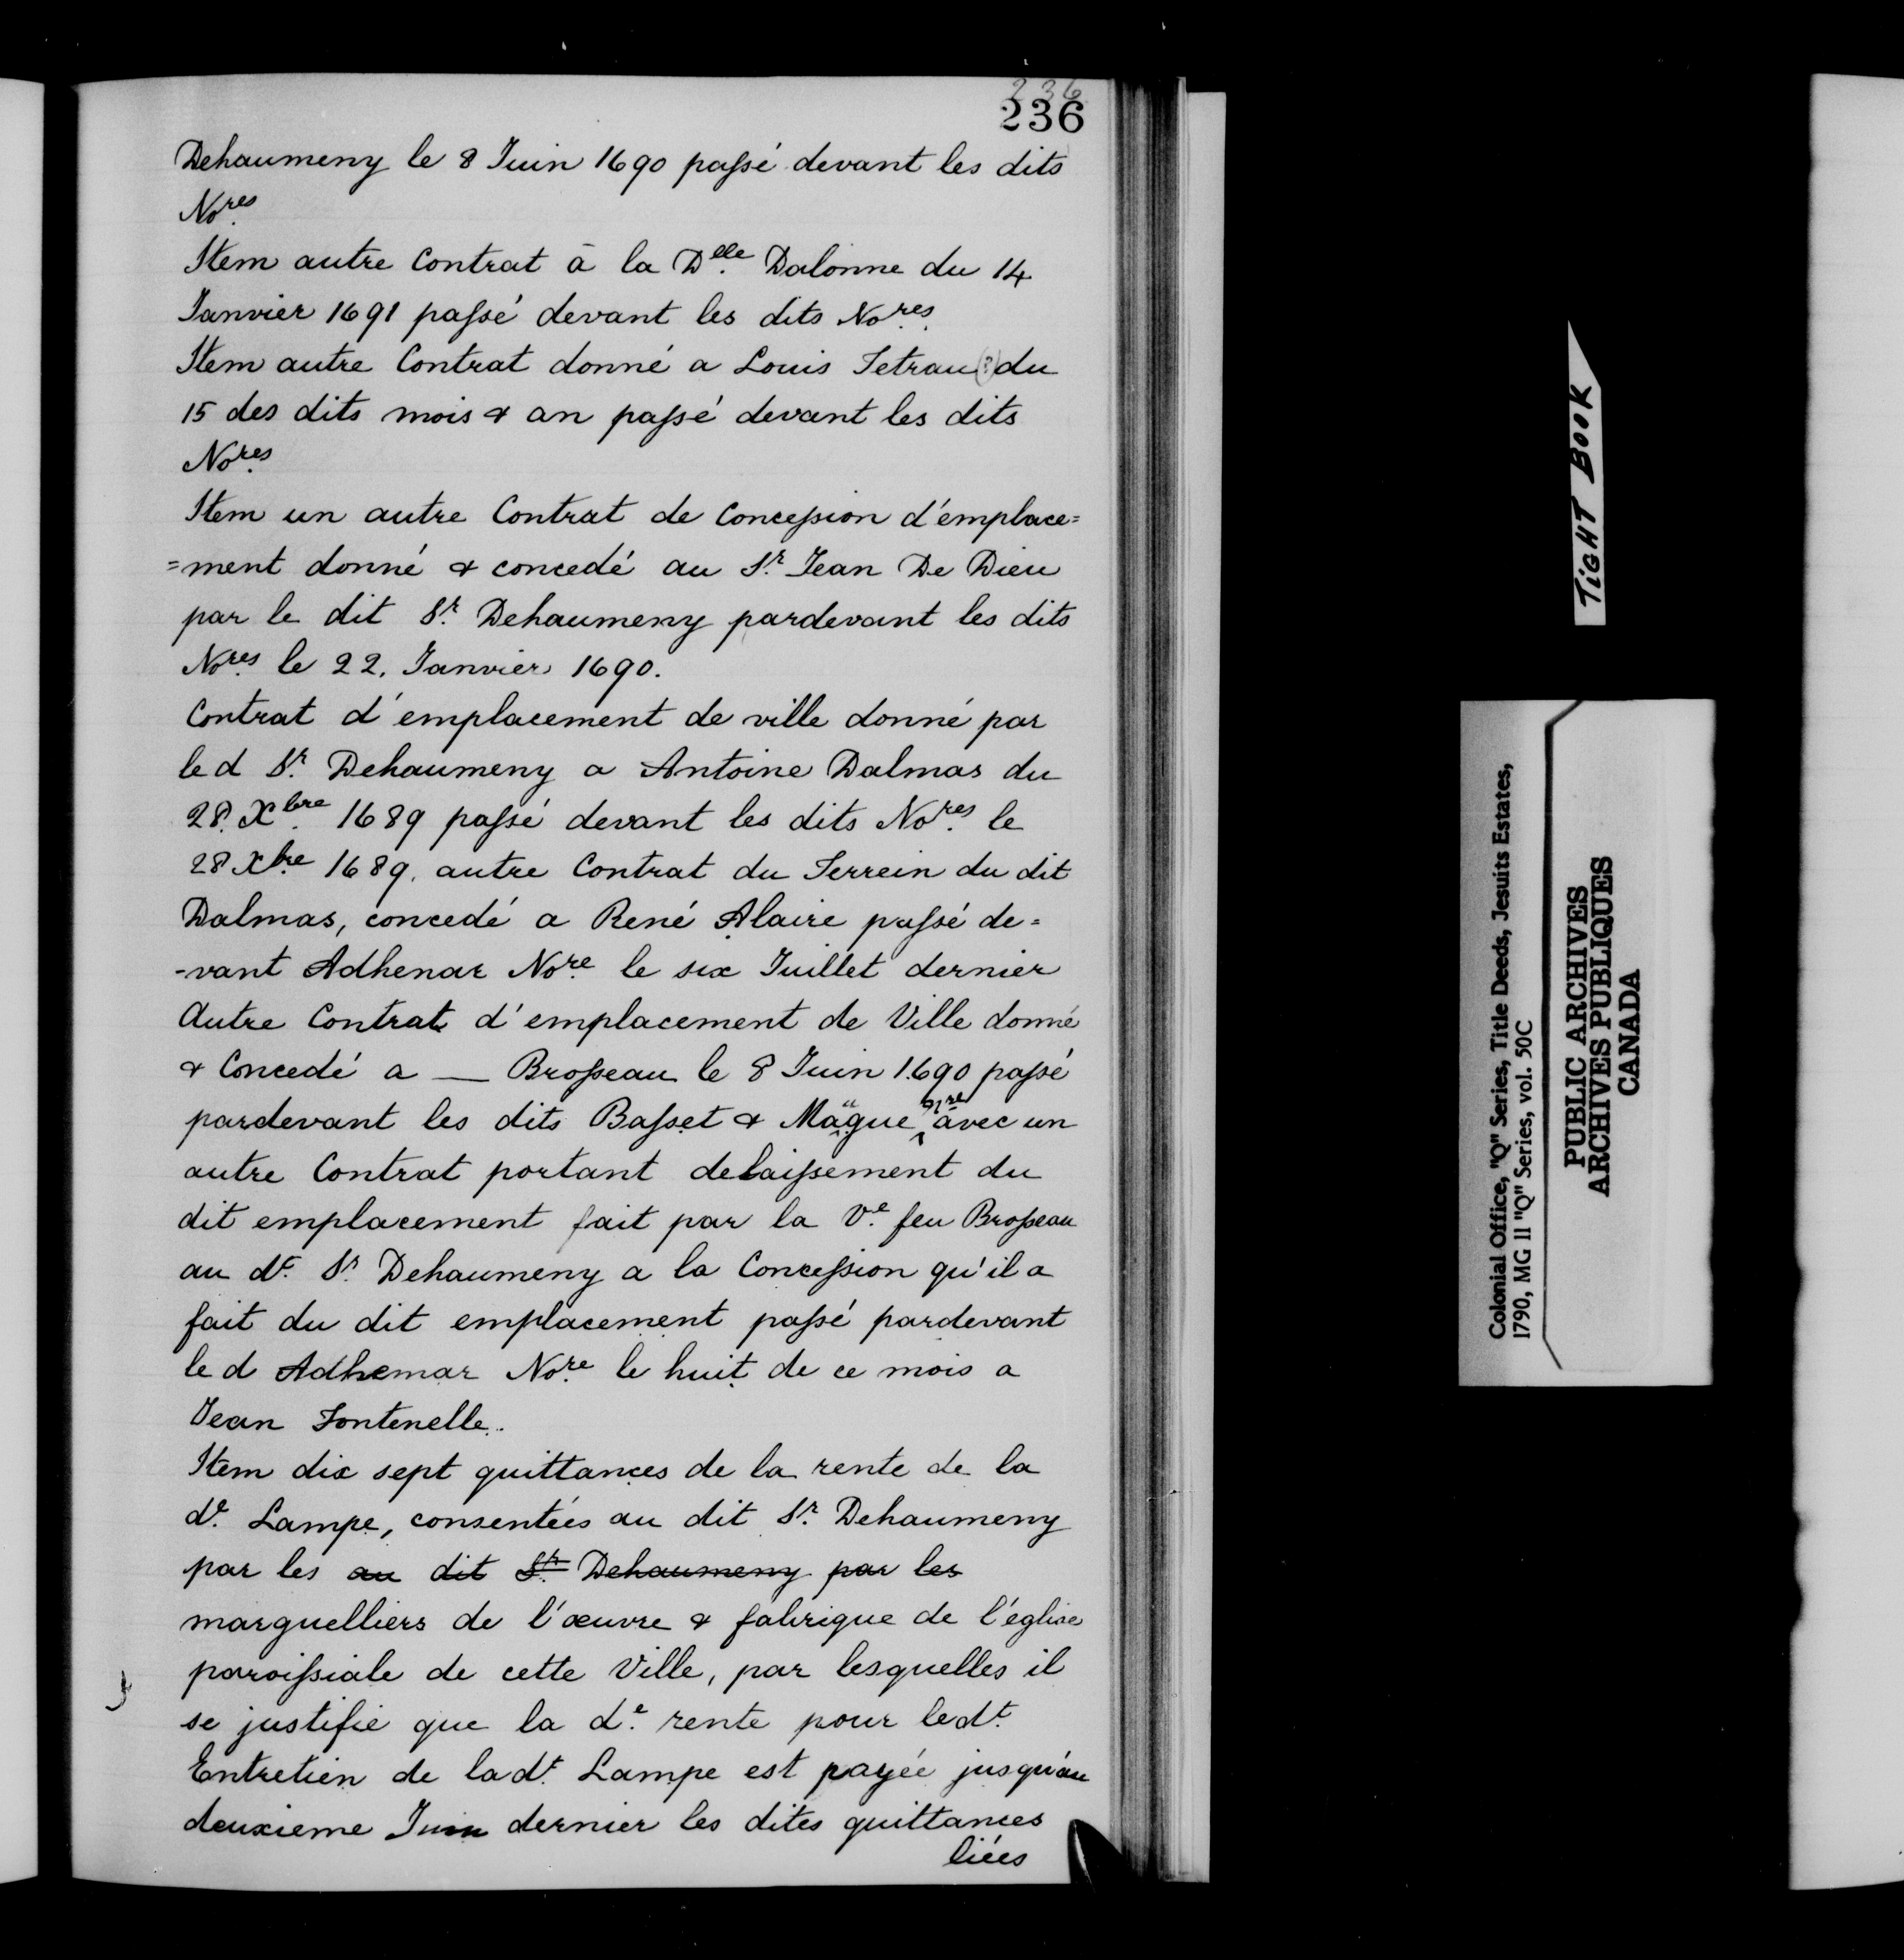 236
236
Dehaumeny le 8 Juin 1690 passé devant les dits
Nores
Item autre Contrat à la Delle Dalonne du 14
Janvier 1691 passé devant les dits Nores
Item autre Contrat donné a Louis Tetrau (?) du
15 des dits mois & an passé devant les dits
Nores
Item un autre Contrat de Concession d'emplace=
=ment donné & concedé au Sr. Jean De Dieu
par le dit Sr. Dehaumeny pardevant les dits
Nores le 22. Janvier 1690.
Contrat d'emplacement de ville donné par
led Sr. Dehaumeny a Antoine Dalmas du
28. Xbre 1689 passé devant les dits Nores le
28 Xbre 1689. autre Contrat du Terrein du dit
Dalmas, concedé a René Alaire passé de=
-vant Adhenar Nore le six Juillet dernier
Autre Contrat d'emplacement de Ville donné
& Concedé a — Brosseau le 8 Juin 1690 passé
pardevant les dits Basset & Mägue nre avec un
autre Contrat portant delaissement du
dit emplacement fait par la Ve. feu Brosseau
au dt. Sr. Dehaumeny a la Concession qu'il a
fait du dit emplacement passé pardevant
led Adhemar Nore le huit de ce mois a
Jean Fontenelle.
Item dix sept quittances de la rente de la
de. Lampe, consentées au dit Sr. Dehaumeny
par les au dit Sr. Dehaumeny par les
marguelliers de l'œuvre & fabrique de l'eglise
paroissiale de cette Ville, par lesquelles il
se justifie que la de. rente pour ledt.
Entretien de ladt. Lampe est payée jusqu'au
deuxieme Juin dernier les dites quittances
liées
TIGHT BOOK
Colonial Office, "Q" Series, Title Deeds, Jesuits Estates,
1790, MG 11 "Q" Series, vol. 50C
PUBLIC ARCHIVES
ARCHIVES PUBLIQUES
CANADA